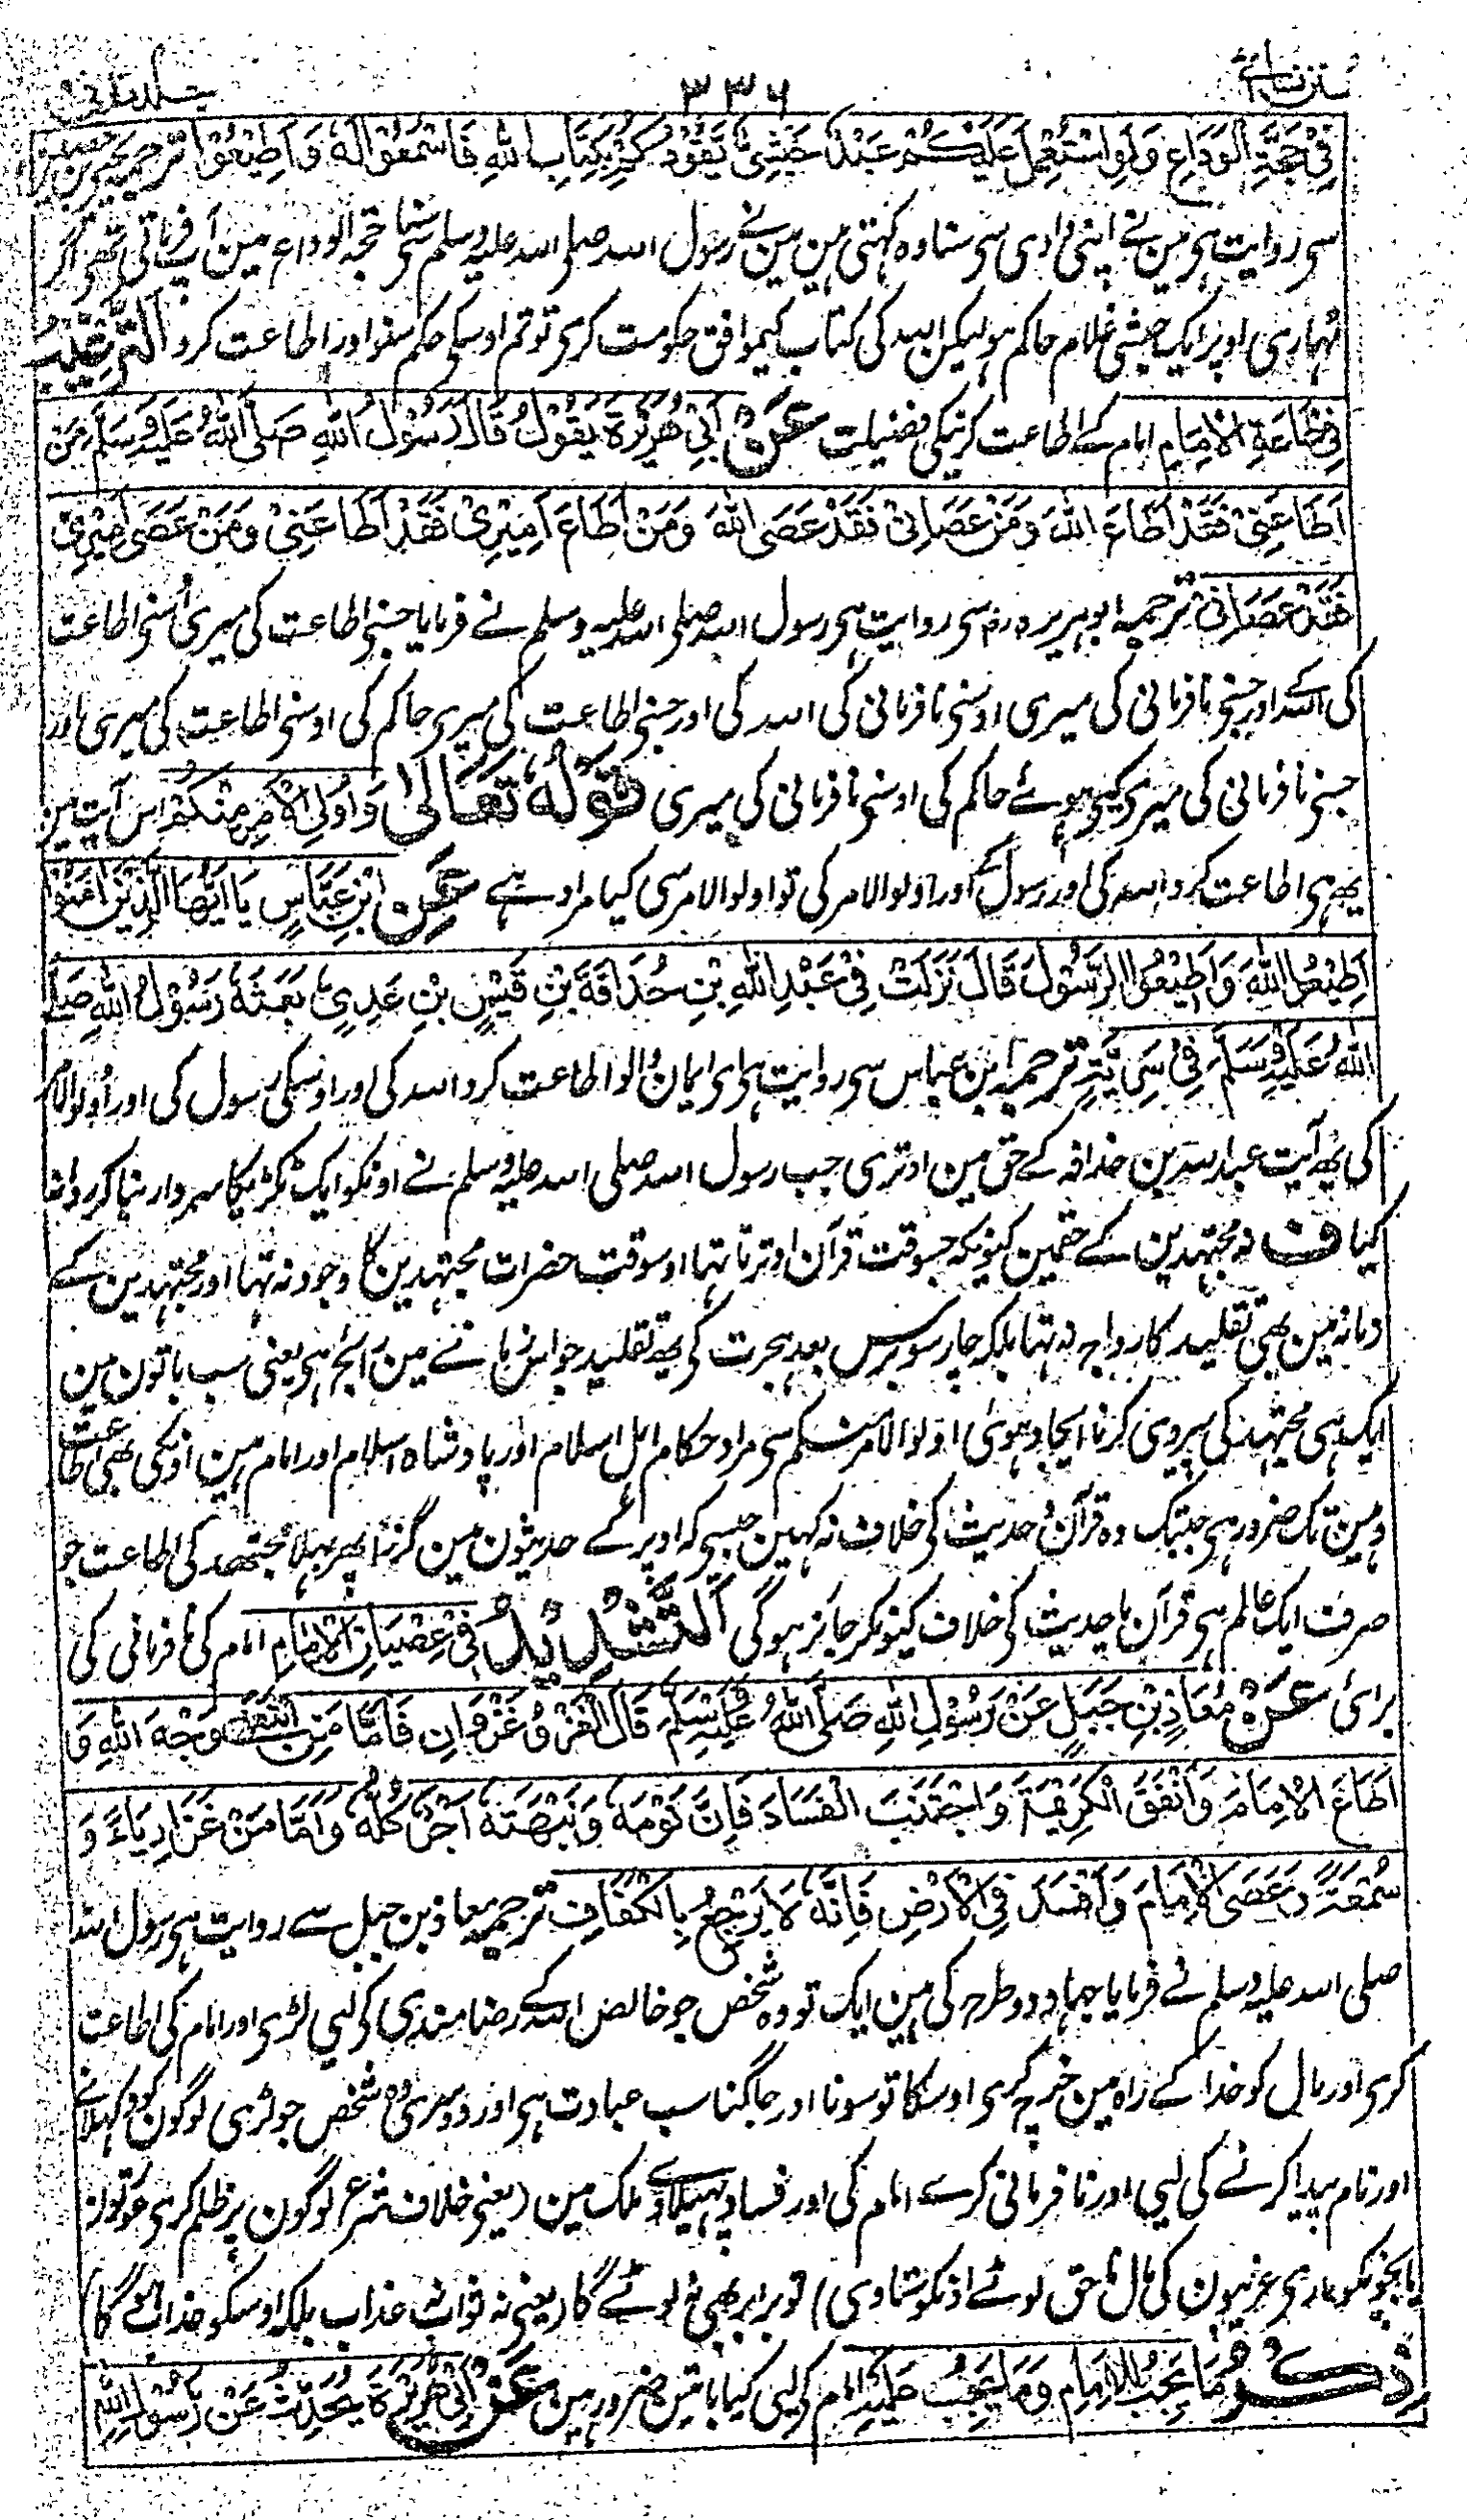 سنن نسائی ۳۳۶ جلد ثانی
فِيْ حَجَّةِ الْوَدَاعِ وَلَوِ اسْتُعْمِلَ عَلَيْكُمْ عَبْدٌ حَبَشِيٌّ يَقُوْدُكُمْ بِكِتَابِ اللهِ فَاسْمَعُوْا لَهٗ وَاَطِيْعُوْا ترجمہ یحیی بن حصین
سی روایت ہی مین نے اپنی دادی سی سنا وہ کہتی ہین مین نے رسول اللہ صلی اللہ علیہ وسلم سی سنا حجۃ الوداع مین آپ فرماتی تھی اگر
تمہاری اوپر ایک حبشی غلام حاکم ہو لیکن اللہ کی کتاب کیموافق حکومت کری تو تم اوسکی حکم سنو اور اطاعت کرو اَلتَّرْغِيْبُ
فِيْ طَاعَةِ الْاِمَامِ امام کے اطاعت کرنیکی فضیلت عَنْ اَبِيْ هُرَيْرَةَ يَقُوْلُ قَالَ رَسُوْلُ اللهِ صَلَّى اللهُ عَلَيْهِ وَسَلَّمَ مَنْ
اَطَاعَنِيْ فَقَدْ اَطَاعَ اللهَ وَمَنْ عَصَانِيْ فَقَدْ عَصَى اللهَ وَمَنْ اَطَاعَ اَمِيْرِيْ فَقَدْ اَطَاعَنِيْ وَمَنْ عَصَى اَمِيْرِيْ
فَقَدْ عَصَانِيْ ترجمہ ابوہریرہ رضی سی روایت ہی رسول اللہ صلی اللہ علیہ وسلم نے فرمایا جسنی اطاعت کی میری اُسنی اطاعت
کی اللہ کے اور جسنی نافرمانی کی میری اوسنی نافرمانی کی اللہ کی اور جسنی اطاعت کی میری حاکم کی اوسنی اطاعت کی میری اور
جسنی نافرمانی کی میری کیی ہوئے حاکم کی اوسنی نافرمانی کی میری قَوْلُهٗ تَعَالٰى وَاُولِي الْاَمْرِ مِنْكُمْ اس آیت مین
یہ ہی اطاعت کرو اللہ کی اور رسول کی اور اولوالامر کی تو اولوالامر سی کیا مراد ہے عَنِ ابْنِ عَبَّاسٍ يَا اَيُّهَا الَّذِيْنَ اٰمَنُوْا
اَطِيْعُوا اللهَ وَاَطِيْعُوا الرَّسُوْلَ قَالَ نَزَلَتْ فِيْ عَبْدِ اللهِ بْنِ حُذَافَةَ بْنِ قَيْسِ بْنِ عَدِيٍّ بَعَثَهٗ رَسُوْلُ اللهِ صَلَّى
اللهُ عَلَيْهِ وَسَلَّمَ فِيْ سَرِيَّةٍ ترجمہ ابن عباس سی روایت ہی ای ایمان والو اطاعت کرو اللہ کی اور اوسکی رسول کی اور اُولوالامر
کی یہ آیت عبداللہ بن حذافہ کے حق مین اوتری جب رسول اللہ صلی اللہ علیہ وسلم نے اونکو ایک ٹکڑیکا سردار بنا کر روانہ
کیا ف نہ مجتہدین کے حقمین کیونکہ جسوقت قرآن اوترتا تہا اوسوقت حضرات مجتہدین کا وجود نہ تہا اور مجتہدین کے
زمانہ مین بھی تقلید کا رواج نہ تہا بلکہ چار سو برس بعد ہجرت کی یہ تقلید جو اس زمانے مین رائج ہی یعنی سب باتون مین
ایک ہی مجتہد کی پیروی کرنا ایجاد ہوئی اولوالامر منکم سی مراد حکام اہل اسلام اور پادشاہ اسلام اور امام ہین اونکی بھی اطاعت
وہین تک ضرور ہی جبتک وہ قرآن و حدیث کی خلاف نہ کہین جیسی کہ اوپر کے حدیثون مین گزرا پھر بہلا مجتہد کی اطاعت جو
صرف ایک عالم ہی قرآن یا حدیث کی خلاف کیونکر جائز ہوگی اَلتَّشْدِيْدُ فِيْ عِصْيَانِ الْاِمَامِ امام کی نافرمانی کی
برائی عَنْ مُعَاذِ بْنِ جَبَلٍ عَنْ رَسُوْلِ اللهِ صَلَّى اللهُ عَلَيْهِ وَسَلَّمَ قَالَ الْغَزْوُ غَزْوَانِ فَاَمَّا مَنِ ابْتَغٰى وَجْهَ اللهِ وَ
اَطَاعَ الْاِمَامَ وَاَنْفَقَ الْكَرِيْمَةَ وَاجْتَنَبَ الْفَسَادَ فَاِنَّ نَوْمَهٗ وَنَبْهَتَهٗ اَجْرٌ كُلُّهٗ وَاَمَّا مَنْ غَزَا رِيَاءً وَ
سُمْعَةً وَعَصَى الْاِمَامَ وَاَفْسَدَ فِي الْاَرْضِ فَاِنَّهٗ لَا يَرْجِعُ بِالْكَفَافِ ترجمہ معاذ بن جبل سے روایت ہی رسول اللہ
صلی اللہ علیہ وسلم نے فرمایا جہاد دو طرح کی ہین ایک تو وہ شخص جو خالص اللہ کے رضامندی کی لیی لڑی اور امام کی اطاعت
کری اور مال کو خدا کے راہ مین خرچ کری اوسکا تو سونا اور جاگنا سب عبادت ہی اور دوسری وہ شخص جو لڑی لوگون کو دکہلانے
اور نام پیدا کرنے کی لیی اور نافرمانی کرے امام کی اور فساد پہیلاوے ملک مین (یعنی خلاف شرع لوگون پر ظلم کری عورتون
یا بچونکو ماری غریبون کی مال ناحق لوٹے اونکو ستاوی) تو برابر بھی نہ لوٹے گا (یعنی نہ ثواب نہ عذاب بلکہ اوسکو عذاب ہوگا)
ذِكْرُ مَا يَجِبُ لِلْاِمَامِ وَمَا يَجِبُ عَلَيْهِ امام کی لیی کیا باتین ضرور ہین عَنْ اَبِيْ هُرَيْرَةَ يُحَدِّثُ عَنْ رَسُوْلِ اللهِ